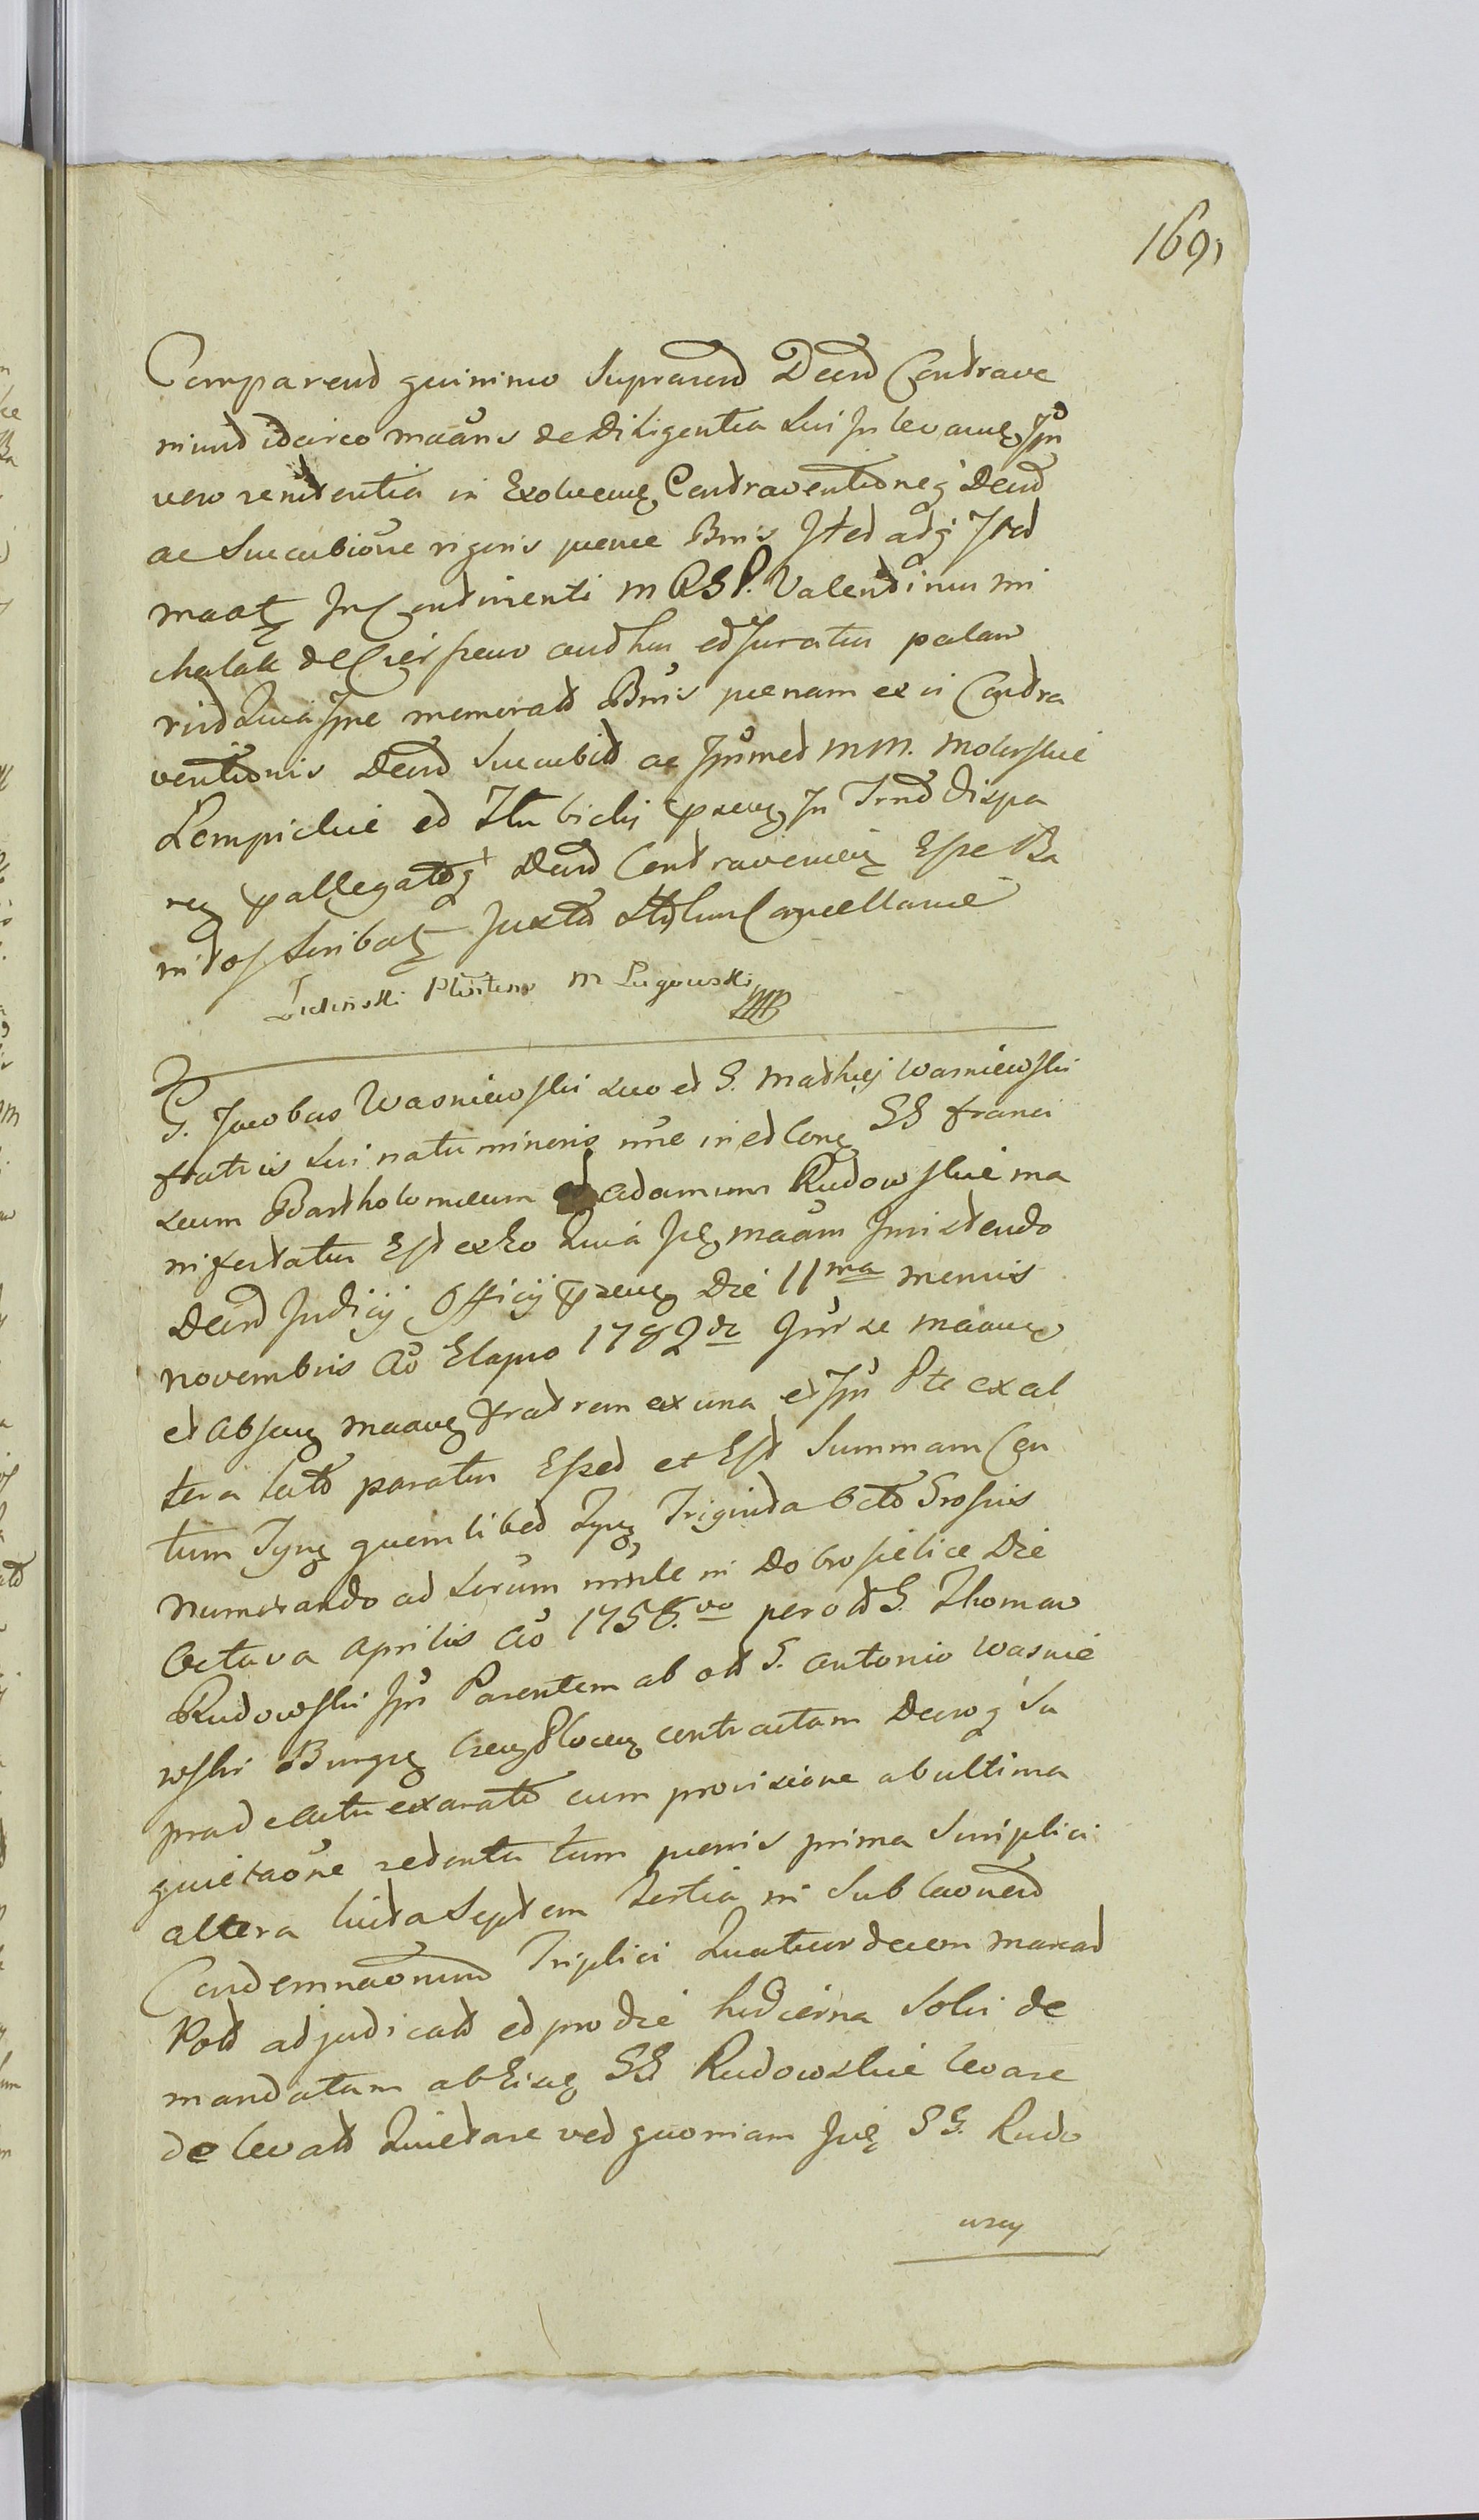 169
Comparend quinimo Supramd Decrd Contrave
niund idcirco maans de Diligentia Sui in levacuę Jpn
vero renitentia in Exolvenę Contraventioneq Decrd
ac Succubione rigoris penae Bnis Jted adq Jted
maatę In Continenti M G S P. Valentinus Mi
chalak de Cierszewo authus ed Juratus palam
rird Quia Jpne memoratd Bnis penam ex vi Contra
ventionis Decrd Succubid ac Jpnmed MM. Molerskie
Lempickie ed Hubickij pzenę In Trnd Dispa
reę pallegatoq Decrd Contravenienę Esse Ba
nitos Scribatę Juxta Stylum Cancellariae
M Lugowski
G. Jacobus Wasniewski Suo et G. Mathiej Wasniewski
fratris Sui natu minoris nne in et Conę GG Franci
scum Bartholomeum et Adamum Rudowskie ma
nifestatus Est ex Eo Quia Jpę maam Jnsistendo
Decrd Judicij Officij pzenę Die 11ma mensis
Novembris Ao Elapso 1782do Jnr se maanę
et absenę maanę fratrem ex una et Jpn Pte ex al
tera Latd paratus Essed et Est Summam Cen
tum Tynę quemlibed Tynę Triginta Octo Grossis
Numerando ad Sorum mnle in Dobrosielice Die
Octava Aprilis Ao 1758.vo per old G. Thomam
Rudowski Jpn Parentem ab old G. Antonio Wasnie
wski Burgrę Crenę Plocenę contractam Decroq Su
pradelatu exarato cum provisione ab ultima
quietaone redenta tum penis prima Simplici
altera luita Septem tertia in Sublaonend
Condemnaonum Triplici Quatuordecem marcad
Pold adjudicatd ed pro die hodierna Solvi de
mandatam ab Eisdę GG Rudowskie levare
de levatd Quietare ved quoniam Jpę GG. Rudo
wscy